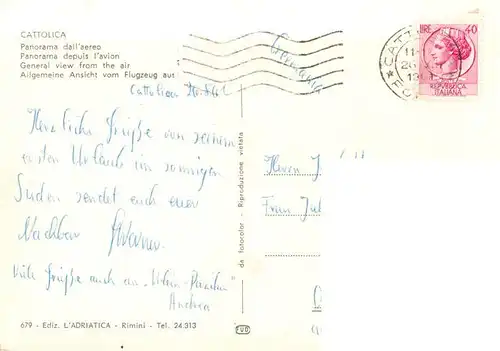 CATTOLICA
Panorama dall'aereo
Panorama depuis l'avion
General view from the air
Allgemeine Ansicht vom Flugzeug aus
Germania
LIRE 40
REPVBBLICA
ITALIANA
Cattolica
Herzliche Grüße von seinem
ersten Urlaub im sonnigen
Süden sendet euch euer
Nachbar Werner
Viele Grüße auch an
Andrea
Herrn J
Frau Jul
da fotocolor - Riproduzione vietata
679 - Ediz. L'ADRIATICA - Rimini - Tel. 24.313